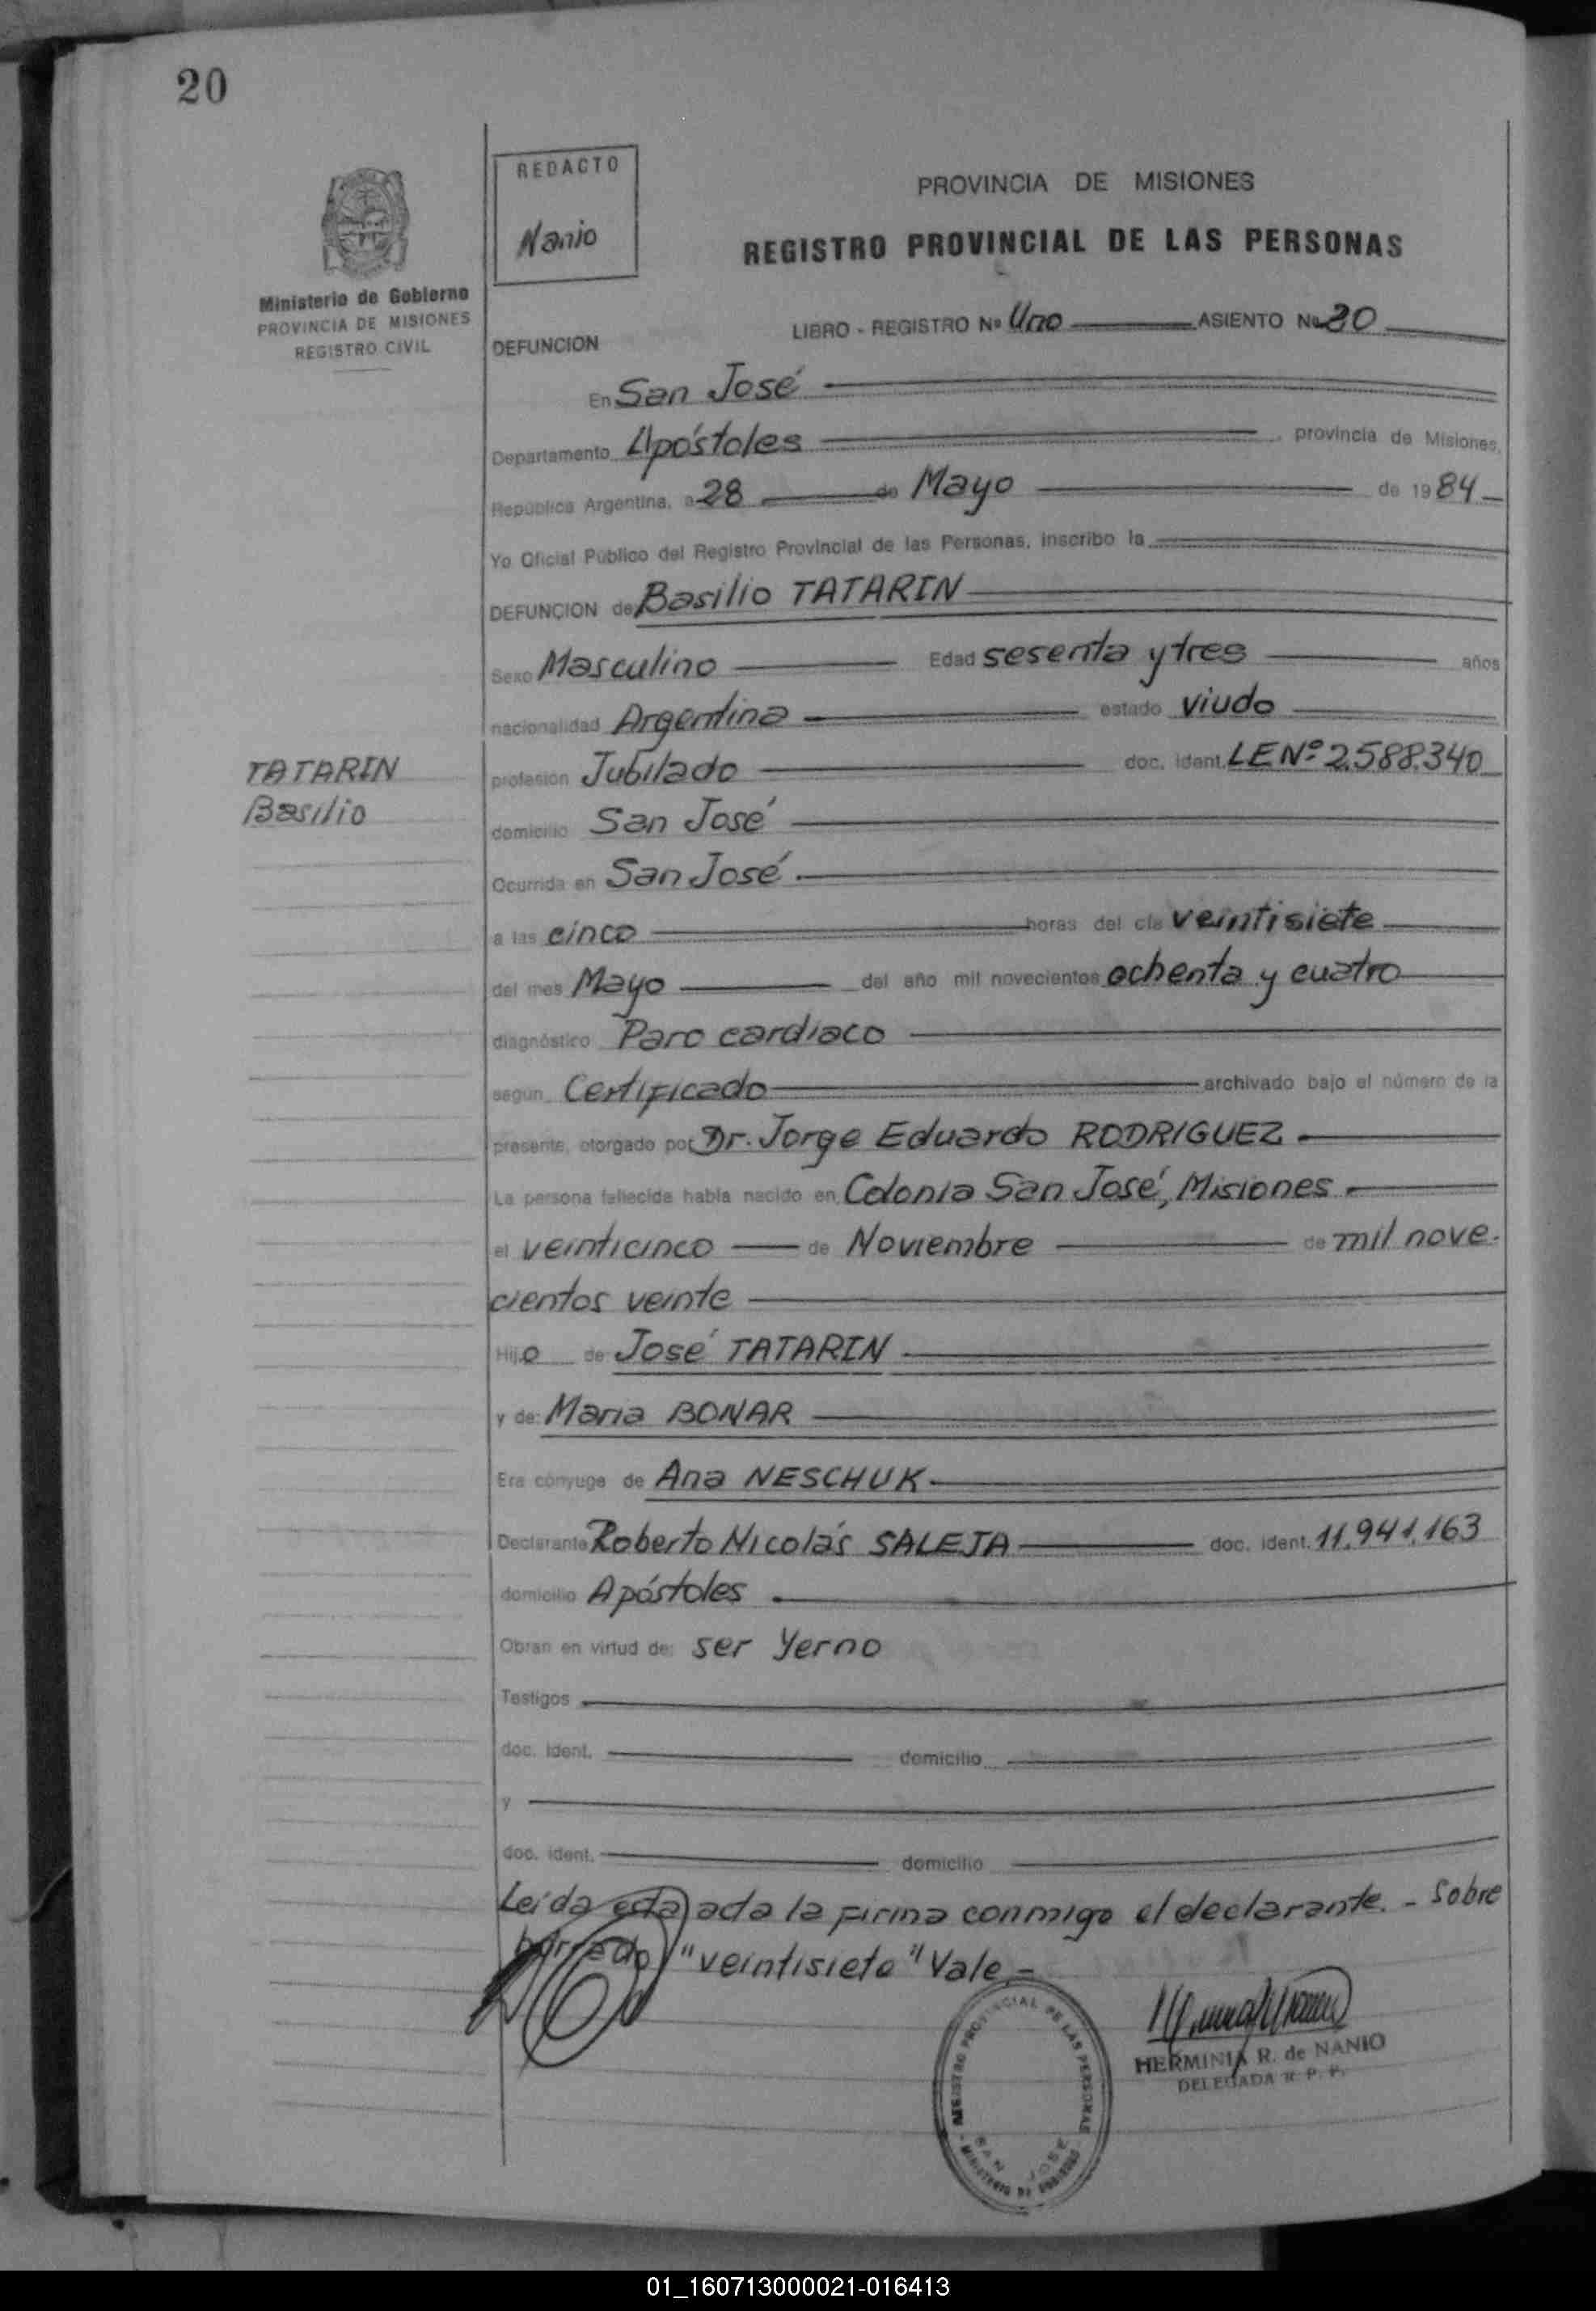 20
REDACTO
Nanio
PROVINCIA DE MISIONES
REGISTRO PROVINCIAL DE LAS PERSONAS
Ministerio de Gobierno
PROVINCIA DE MISIONES
REGISTRO CIVIL
LIBRO - REGISTRO Nº Uno ASIENTO Nº 20
DEFUNCION
En San José
Departamento Apóstoles, provincia de Misiones,
República Argentina, a 28 de Mayo de 1984
Yo Oficial Público del Registro Provincial de las Personas, inscribo la
DEFUNCION de Basilio TATARIN
Sexo Masculino Edad sesenta y tres años
nacionalidad Argentina estado viudo
TATARIN
Basilio
profesión Jubilado doc. ident. LE Nº 2.588.340
domicilio San José
Ocurrida en San José
a las cinco horas del día veintisiete
del mes Mayo del año mil novecientos ochenta y cuatro
diagnóstico Paro cardiaco
según Certificado archivado bajo el número de la
presente, otorgado por Dr. Jorge Eduardo RODRIGUEZ
La persona fallecida había nacido en Colonia San José, Misiones
el veinticinco de Noviembre de mil nove-
cientos veinte
Hijo de: José TATARIN
y de: Maria BONAR
Era cónyuge de Ana NESCHUK
Declarante Roberto Nicolás SALEJA doc. ident. 11.941.163
domicilio Apóstoles
Obran en virtud de: ser Yerno
Testigos
doc. ident. domicilio
y
doc. ident. domicilio
Leída esta acta la firma conmigo el declarante. - Sobre
borrado "veintisiete" Vale.-
REGISTRO PROVINCIAL DE LAS PERSONAS
SAN JOSE
MINISTERIO DE GOBIERNO
HERMINIA R. de NANIO
DELEGADA R. P. P.
01_160713000021-016413